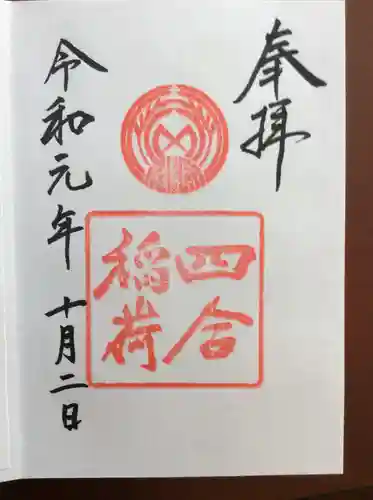 奉拝
四合
稲荷
令和元年十月二日